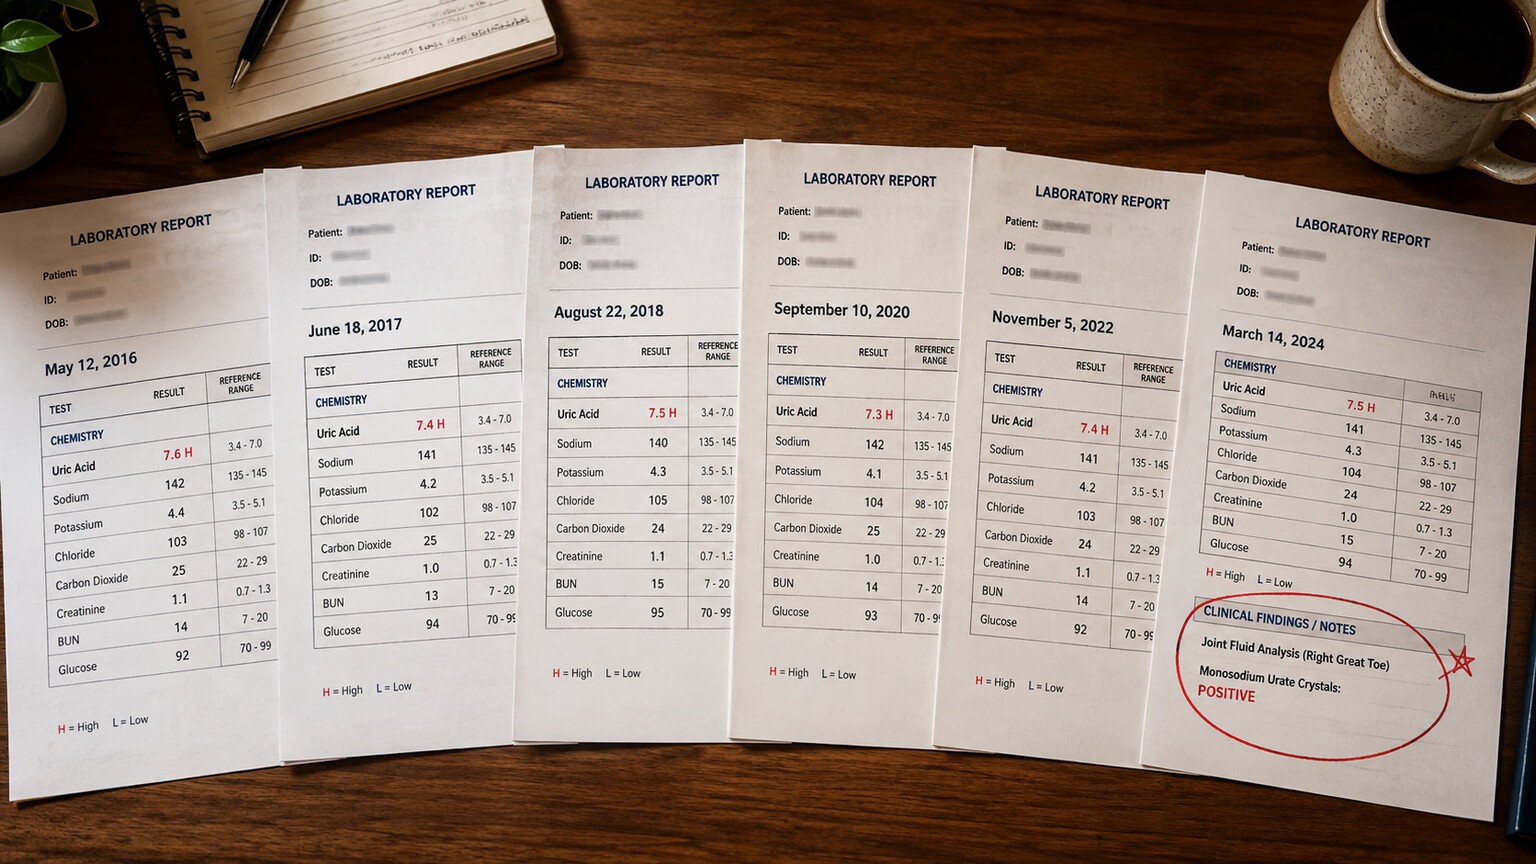 LABORATORY REPORT
Patient:
ID:
DOB:
May 12, 2016
TEST RESULT REFERENCE RANGE
CHEMISTRY
Uric Acid 7.6 H 3.4 - 7.0
Sodium 142 135 - 145
Potassium 4.4 3.5 - 5.1
Chloride 103 98 - 107
Carbon Dioxide 25 22 - 29
Creatinine 1.1 0.7 - 1.3
BUN 14 7 - 20
Glucose 92 70 - 99
H = High L = Low
LABORATORY REPORT
Patient:
ID:
DOB:
June 18, 2017
TEST RESULT REFERENCE RANGE
CHEMISTRY
Uric Acid 7.4 H 3.4 - 7.0
Sodium 141 135 - 145
Potassium 4.2 3.5 - 5.1
Chloride 102 98 - 107
Carbon Dioxide 25 22 - 29
Creatinine 1.0 0.7 - 1.3
BUN 13 7 - 20
Glucose 94 70 - 99
H = High L = Low
LABORATORY REPORT
Patient:
ID:
DOB:
August 22, 2018
TEST RESULT REFERENCE RANGE
CHEMISTRY
Uric Acid 7.5 H 3.4 - 7.0
Sodium 140 135 - 145
Potassium 4.3 3.5 - 5.1
Chloride 105 98 - 107
Carbon Dioxide 24 22 - 29
Creatinine 1.1 0.7 - 1.3
BUN 15 7 - 20
Glucose 95 70 - 99
H = High L = Low
LABORATORY REPORT
Patient:
ID:
DOB:
September 10, 2020
TEST RESULT REFERENCE RANGE
CHEMISTRY
Uric Acid 7.3 H 3.4 - 7.0
Sodium 142 135 - 145
Potassium 4.1 3.5 - 5.1
Chloride 104 98 - 107
Carbon Dioxide 25 22 - 29
Creatinine 1.0 0.7 - 1.3
BUN 14 7 - 20
Glucose 93 70 - 99
H = High L = Low
LABORATORY REPORT
Patient:
ID:
DOB:
November 5, 2022
TEST RESULT REFERENCE RANGE
CHEMISTRY
Uric Acid 7.4 H 3.4 - 7.0
Sodium 141 135 - 145
Potassium 4.2 3.5 - 5.1
Chloride 103 98 - 107
Carbon Dioxide 24 22 - 29
Creatinine 1.1 0.7 - 1.3
BUN 14 7 - 20
Glucose 92 70 - 99
H = High L = Low
LABORATORY REPORT
Patient:
ID:
DOB:
March 14, 2024
CHEMISTRY
Uric Acid 7.5 H 3.4 - 7.0
Sodium 141 135 - 145
Potassium 4.3 3.5 - 5.1
Chloride 104 98 - 107
Carbon Dioxide 24 22 - 29
Creatinine 1.0 0.7 - 1.3
BUN 15 7 - 20
Glucose 94 70 - 99
H = High L = Low
CLINICAL FINDINGS / NOTES
Joint Fluid Analysis (Right Great Toe)
Monosodium Urate Crystals:
POSITIVE